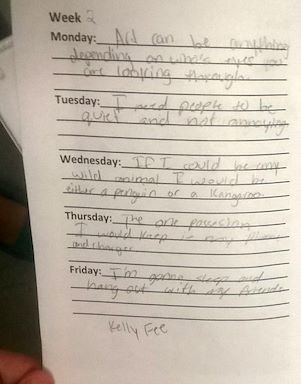 Week 2
Monday: Art can be anything
depending on whose eyes you
are looking through.
Tuesday: I need people to be
quiet and not annoying
Wednesday: If I could be any
wild animal I would be
either a penguin or a Kangaroo.
Thursday: The one possession
I would keep is my phone
and charger
Friday: I'm gonna sleep and
hang out with my friends
Kelly Fee